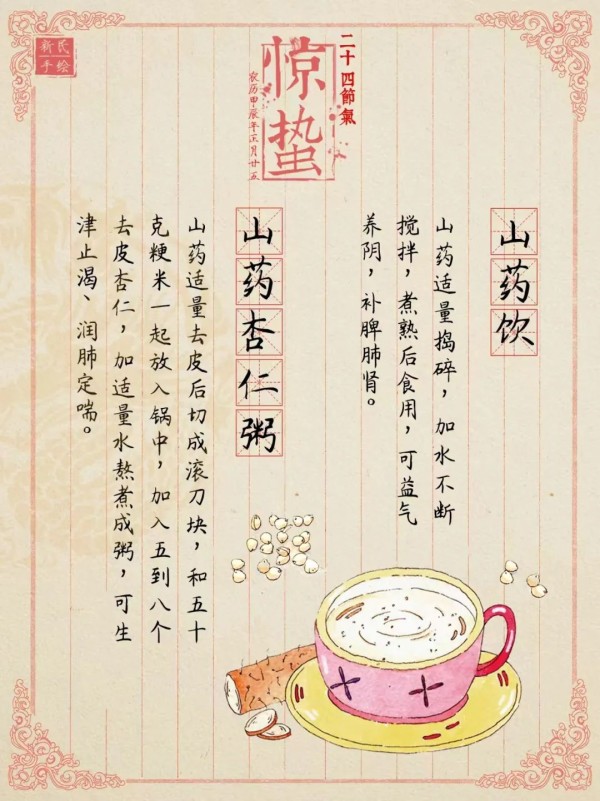 新民
手绘
二十四節氣
惊蛰
农历甲辰年正月廿五
山药饮
山药适量捣碎，加水不断
搅拌，煮熟后食用，可益气
养阴，补脾肺肾。
山药杏仁粥
山药适量去皮后切成滚刀块，和五十
克粳米一起放入锅中，加入五到八个
去皮杏仁，加适量水熬煮成粥，可生
津止渴、润肺定喘。